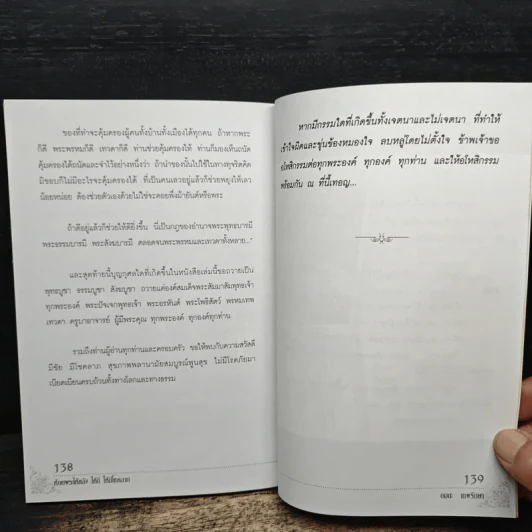 ของที่ทำจะคุ้มครองผู้คนทั้งบ้านทั้งเมืองได้ทุกคน ถ้าหากพระ
ก็ดี พระพรหมก็ดี เทวดาก็ดี ท่านช่วยคุ้มครองให้ ท่านก็มองเห็นถนัด
คุ้มครองได้ถนัดและจำไว้อย่างหนึ่งว่า ถ้านำของนั้นไปใช้ในทางทุจริตคิด
มิชอบก็ไม่มีอะไรจะคุ้มครองได้ ที่เป็นคนเลวอยู่แล้วก็ช่วยพยุงให้เลว
น้อยหน่อย ต้องช่วยตัวเองด้วยไม่ใช่จะคอยพึ่งผ้ายันต์หรือพระ
ถ้าดีอยู่แล้วก็ช่วยให้ดียิ่งขึ้น นี่เป็นกฎของอำนาจพระพุทธบารมี
พระธรรมบารมี พระสังฆบารมี ตลอดจนพระพรหมและเทวดาทั้งหลาย..."
และสุดท้ายนี้บุญกุศลใดที่เกิดขึ้นในหนังสือเล่มนี้ขอถวายเป็น
พุทธบูชา ธรรมบูชา สังฆบูชา ถวายแด่องค์สมเด็จพระสัมมาสัมพุทธเจ้า
ทุกพระองค์ พระปัจเจกพุทธเจ้า พระอรหันต์ พระโพธิสัตว์ พรหมเทพ
เทวดา ครูบาอาจารย์ ผู้มีพระคุณ ทุกพระองค์ ทุกองค์ทุกท่าน
รวมถึงท่านผู้อ่านทุกท่านและครอบครัว ขอให้พบกับความสวัสดี
มีชัย มีโชคลาภ สุขภาพพลานามัยสมบูรณ์พูนสุข ไม่มีโรคภัยมา
เบียดเบียนครบถ้วนทั้งทางโลกและทางธรรม
138
หากมีกรรมใดที่เกิดขึ้นทั้งเจตนาและไม่เจตนา ที่ทำให้
เข้าใจผิดและขุ่นข้องหมองใจ ลบหลู่โดยไม่ตั้งใจ ข้าพเจ้าขอ
อโหสิกรรมต่อทุกพระองค์ ทุกองค์ ทุกท่าน และให้อโหสิกรรม
พร้อมกัน ณ ที่นี้เทอญ...
139